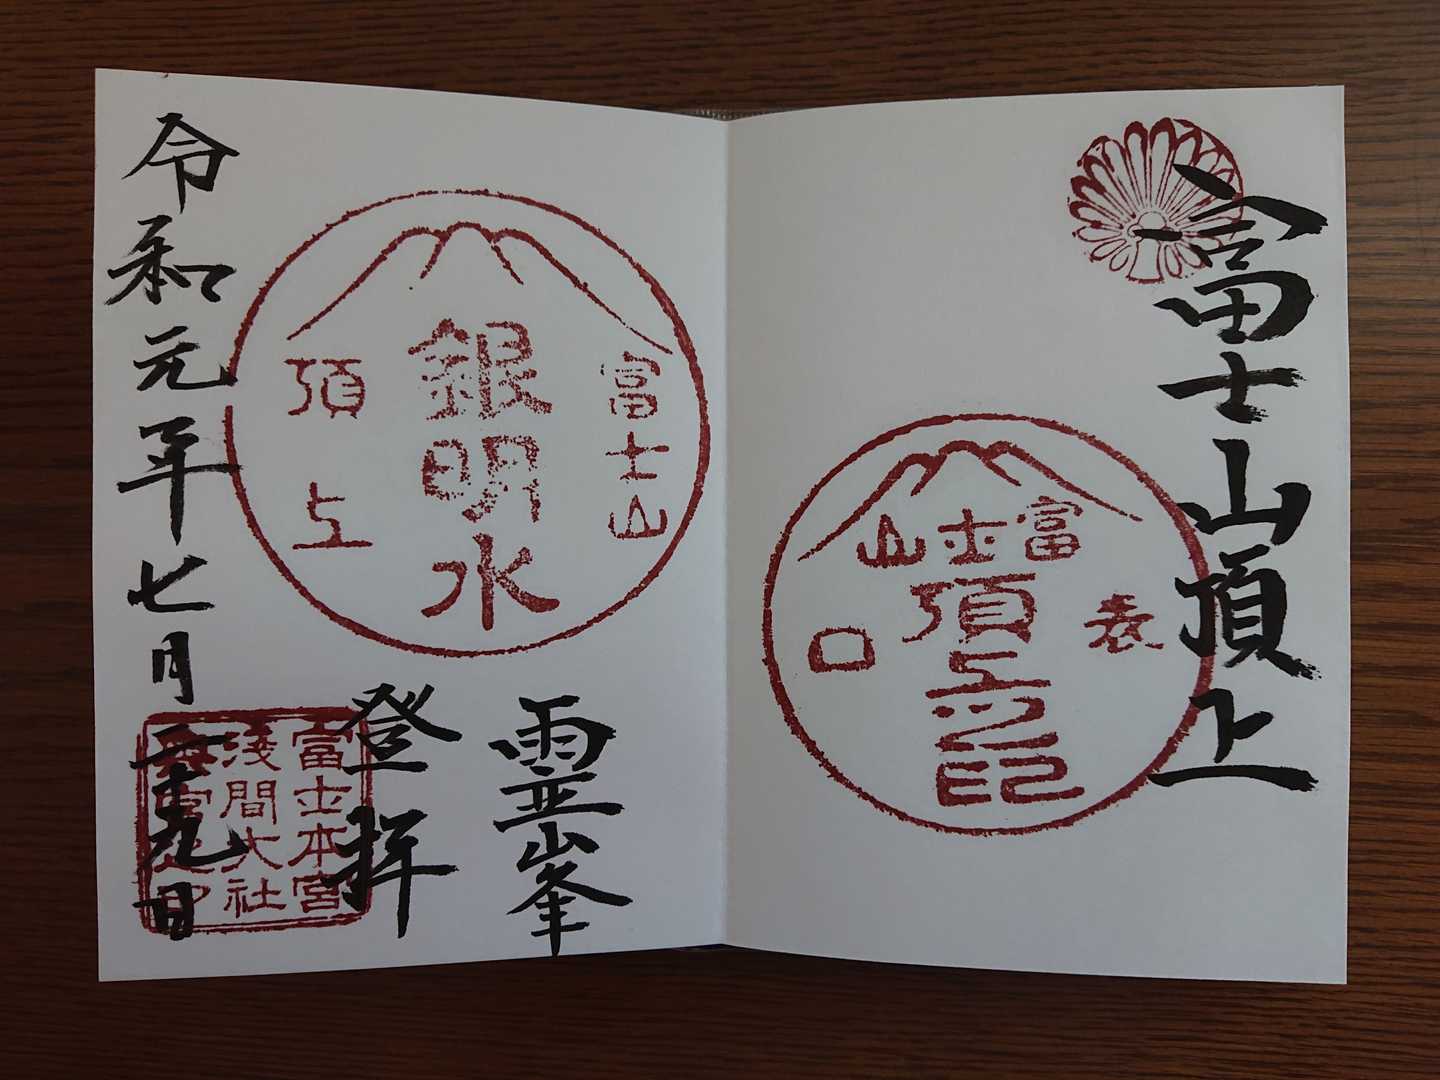 富士山頂上
富士山
頂上之印
表
口
富士山
銀明水
頂上
霊峯
登拝
令和元年七月二十九日
富士本宮
淺間大社